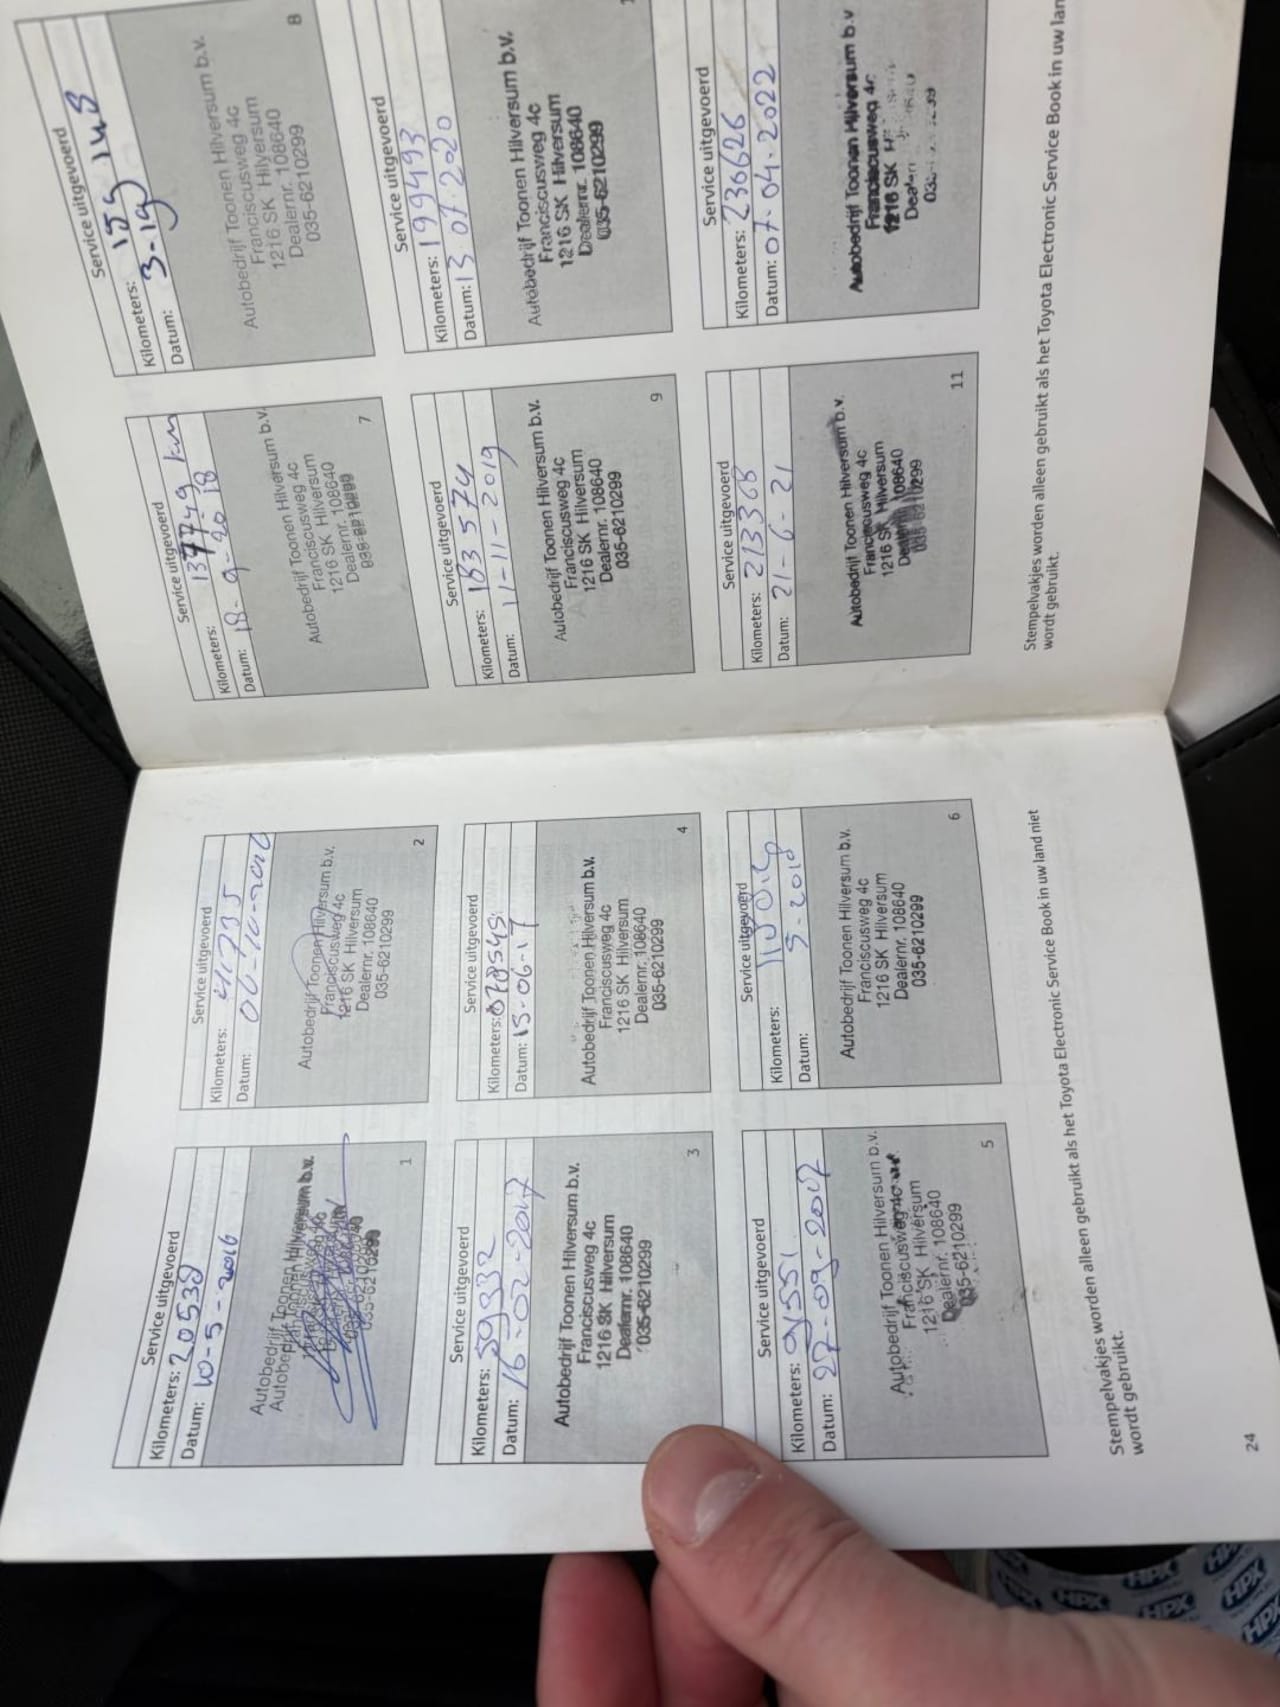 Service uitgevoerd
Kilometers: 20538
Datum: 10-5-2016
Autobedrijf Toonen Hilversum b.v.
035-6210299
1
Service uitgevoerd
Kilometers: 41735
Datum:
Autobedrijf Toonen Hilversum b.v.
Franciscusweg 4c
1216 SK Hilversum
Dealernr. 108640
035-6210299
2
Service uitgevoerd
Kilometers: 59332
Datum: 16-02-2017
Autobedrijf Toonen Hilversum b.v.
Franciscusweg 4c
1216 SK Hilversum
Dealernr. 108640
035-6210299
3
Service uitgevoerd
Kilometers: 078545
Datum: 15-06-17
Autobedrijf Toonen Hilversum b.v.
Franciscusweg 4c
1216 SK Hilversum
Dealernr. 108640
035-6210299
4
Service uitgevoerd
Kilometers: 91551
Datum: 27-09-2017
Autobedrijf Toonen Hilversum b.v.
Franciscusweg 4c
1216 SK Hilversum
Dealernr. 108640
035-6210299
5
Service uitgevoerd
Kilometers:
Datum: 5-2018
Autobedrijf Toonen Hilversum b.v.
Franciscusweg 4c
1216 SK Hilversum
Dealernr. 108640
035-6210299
6
Stempelvakjes worden alleen gebruikt als het Toyota Electronic Service Book in uw land niet
wordt gebruikt.
24
Service uitgevoerd
Kilometers: 137749 km
Datum: 18-9-2018
Autobedrijf Toonen Hilversum b.v.
Franciscusweg 4c
1216 SK Hilversum
Dealernr. 108640
035-6210299
7
Service uitgevoerd
Kilometers:
Datum: 3-19
Autobedrijf Toonen Hilversum b.v.
Franciscusweg 4c
1216 SK Hilversum
Dealernr. 108640
035-6210299
8
Service uitgevoerd
Kilometers: 183574
Datum: 11-11-2019
Autobedrijf Toonen Hilversum b.v.
Franciscusweg 4c
1216 SK Hilversum
Dealernr. 108640
035-6210299
9
Service uitgevoerd
Kilometers: 199493
Datum: 13 07.2020
Autobedrijf Toonen Hilversum b.v.
Franciscusweg 4c
1216 SK Hilversum
Dealernr. 108640
035-6210299
Service uitgevoerd
Kilometers: 213368
Datum: 21-6-21
Autobedrijf Toonen Hilversum b.v.
Franciscusweg 4c
1216 SK Hilversum
Dealernr. 108640
035-6210299
11
Service uitgevoerd
Kilometers: 236626
Datum: 07-04-2022
Autobedrijf Toonen Hilversum b.v
Franciscusweg 4c
1216 SK
Stempelvakjes worden alleen gebruikt als het Toyota Electronic Service Book in uw lan
wordt gebruikt.
HPX
HPX
HPX
HPX
HPX
HPX